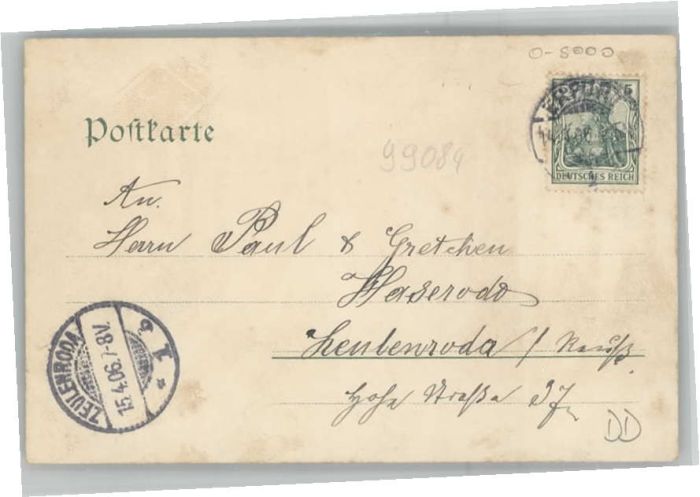 0-5000
5
ERFURT
DEUTSCHES REICH
Postkarte
99084
An.
Herrn Paul & Gretchen
Haserodo
Zeulenroda / Reuß
Hohe Straße 37
ZEULENRODA
15.4.06.7-8V.
* 1 b
DD